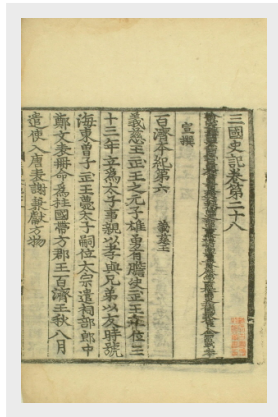 三國史記卷第二十八
宣撰
百濟本紀第六 義慈王
義慈王武王之元子雄勇有膽决武王在位三
十三年立為太子事親以孝與兄弟以友時號
海東曾子武王薨太子嗣位太宗遣祠部郎中
鄭文表冊命為柱國帶方郡王百濟王秋八月
遣使入唐表謝兼獻方物